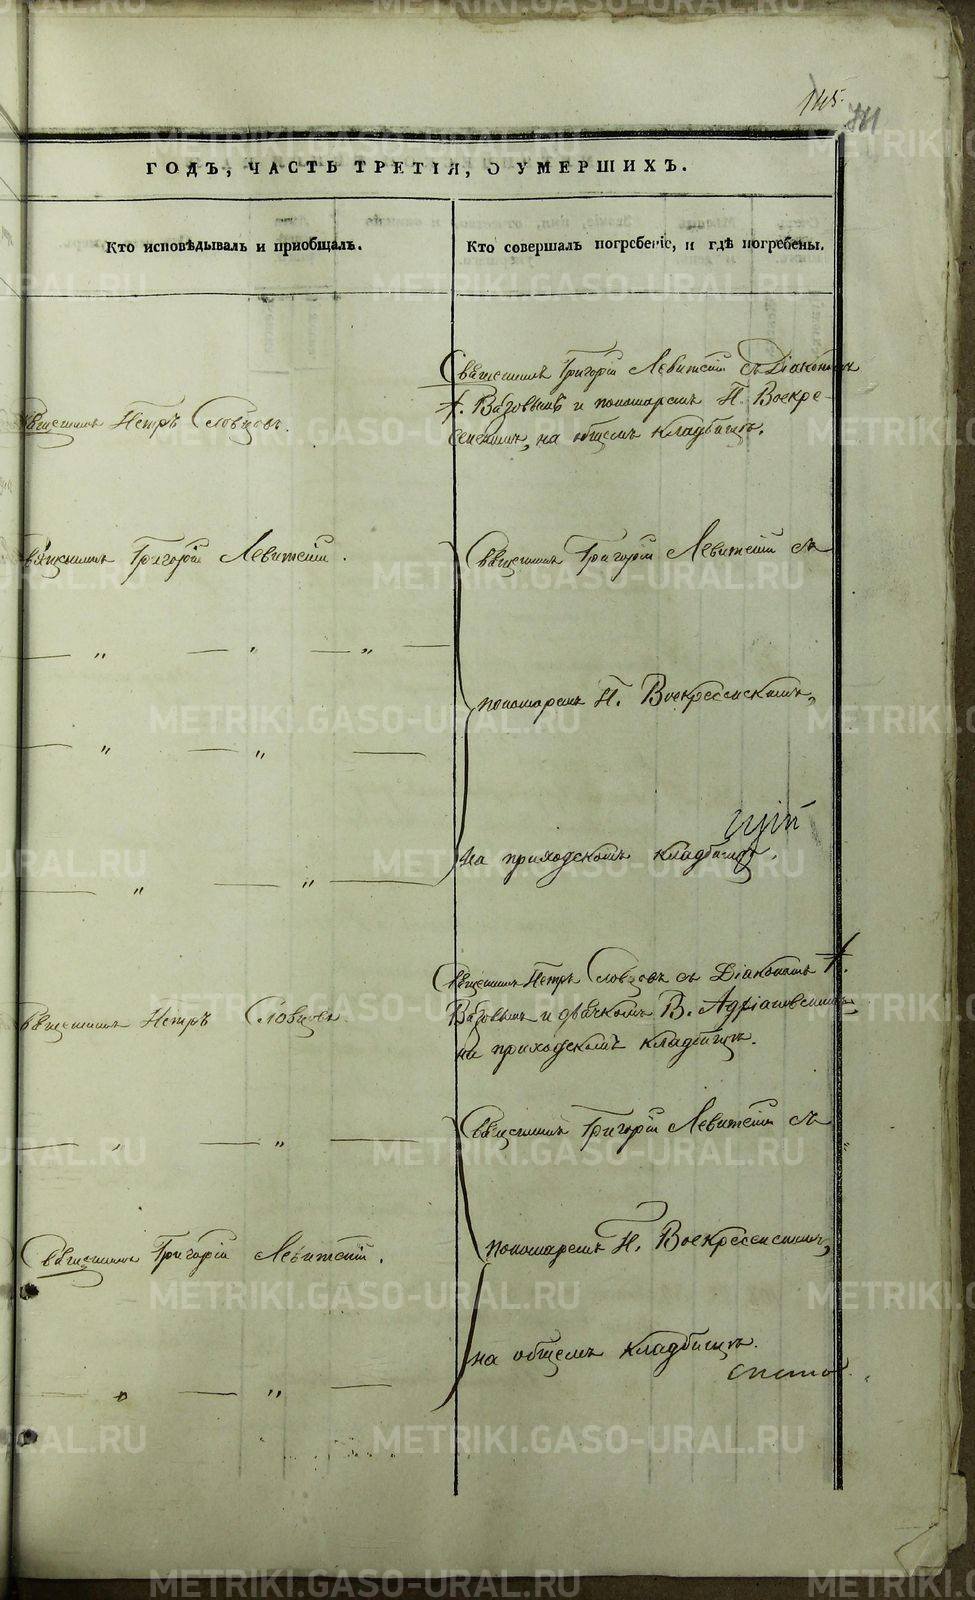 145.
ГОДЪ, ЧАСТЬ ТРЕТІЯ, О УМЕРШИХЪ.
Кто исповѣдывалъ и приобщалъ.
Кто совершалъ погребеніе, и гдѣ погребены.
Священникъ Григорій Левитскій съ Діакономъ
Вазовымъ и пономаремъ Н. Воскре-
сенскимъ, на общемъ кладбищѣ.
Священникъ Петръ Словцовъ.
Священникъ Григорій Левитскій.
Священникъ Григорій Левитскій съ
— „ — „ — „ —
пономаремъ Н. Воскресенскимъ,
— „ — „ —
на приходскомъ кладбищѣ.
— „ — „ —
Священникъ Петръ Словцовъ съ Діакономъ
Вазовымъ и дьячкомъ В. Адріановскимъ
на приходскомъ кладбищѣ.
Священникъ Петръ Словцовъ
Священникъ Григорій Левитскій съ
— „ — „ —
пономаремъ Н. Воскресенскимъ,
Священникъ Григорій Левитскій.
на общемъ кладбищѣ.
— „ — „ —
METRIKI.GASO-URAL.RU